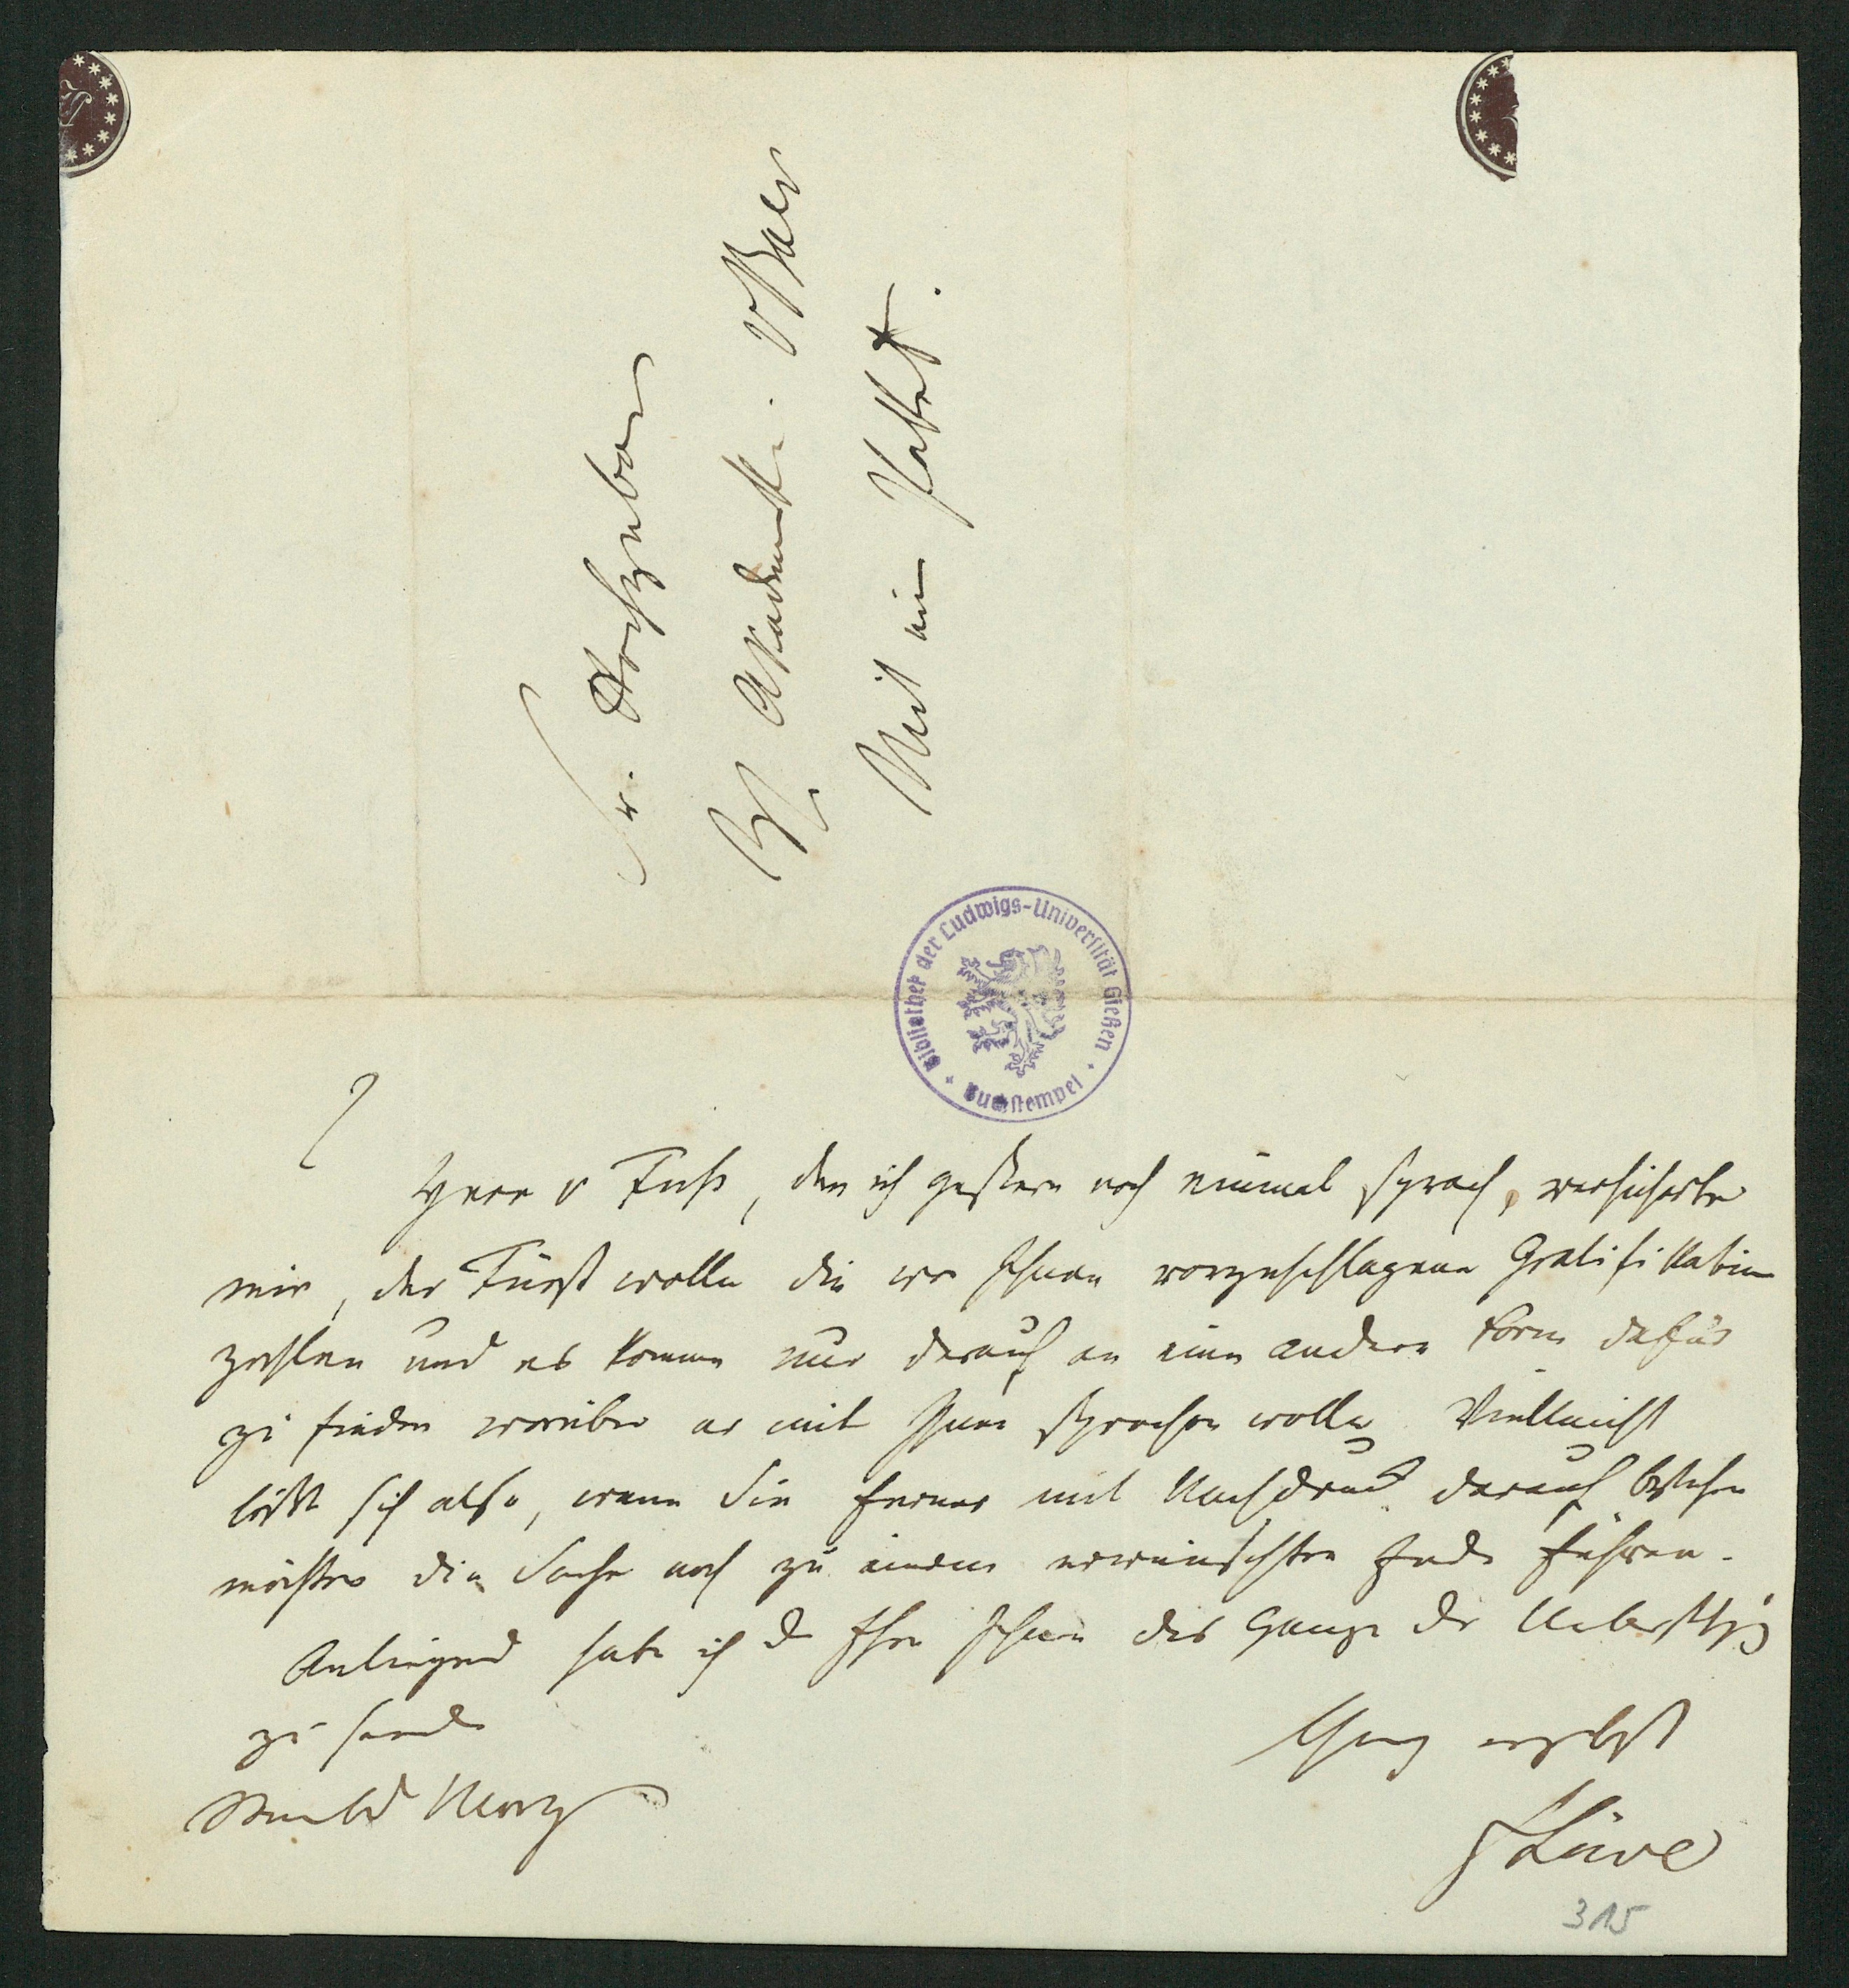 Sr. Hochgebor
H Akademik. v Baer
Mit ein Paket.
Bibliothek der Ludwigs-Universität Gießen
Buchstempel
Herr v Fuß, den ich gestern noch einmal sprach, versicherte
mir, der Fürst wolle die von Ihnen vorgeschlagene Gratifikation
zahlen und es komme nur darauf an eine andere Form dafür
zu finden worüber er mit Ihnen sprechen wolle Vielleicht
läßt sich also, wenn Sie ferner mit Nachdruck darauf bestehen
möchten die Sache noch zu einem erwünschten Ende führen.
Anliegend habe ich d Ehre Ihnen das Ganze der
zu senden
Ganz ergebst
Löwe
315